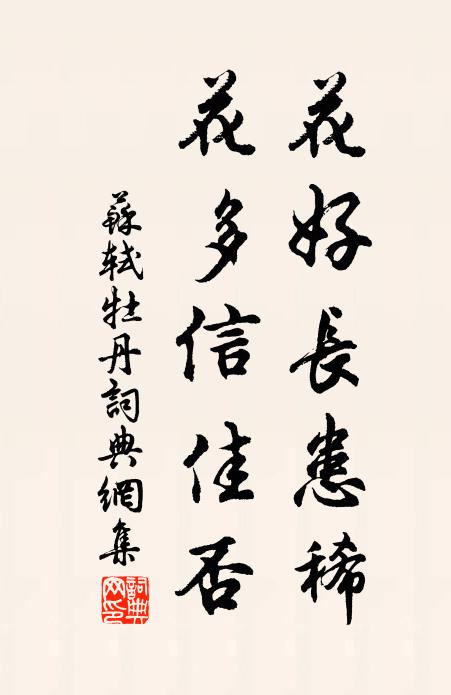 花好長患稀
花多信佳否
蘇軾牡丹詞典網集
詞典网印